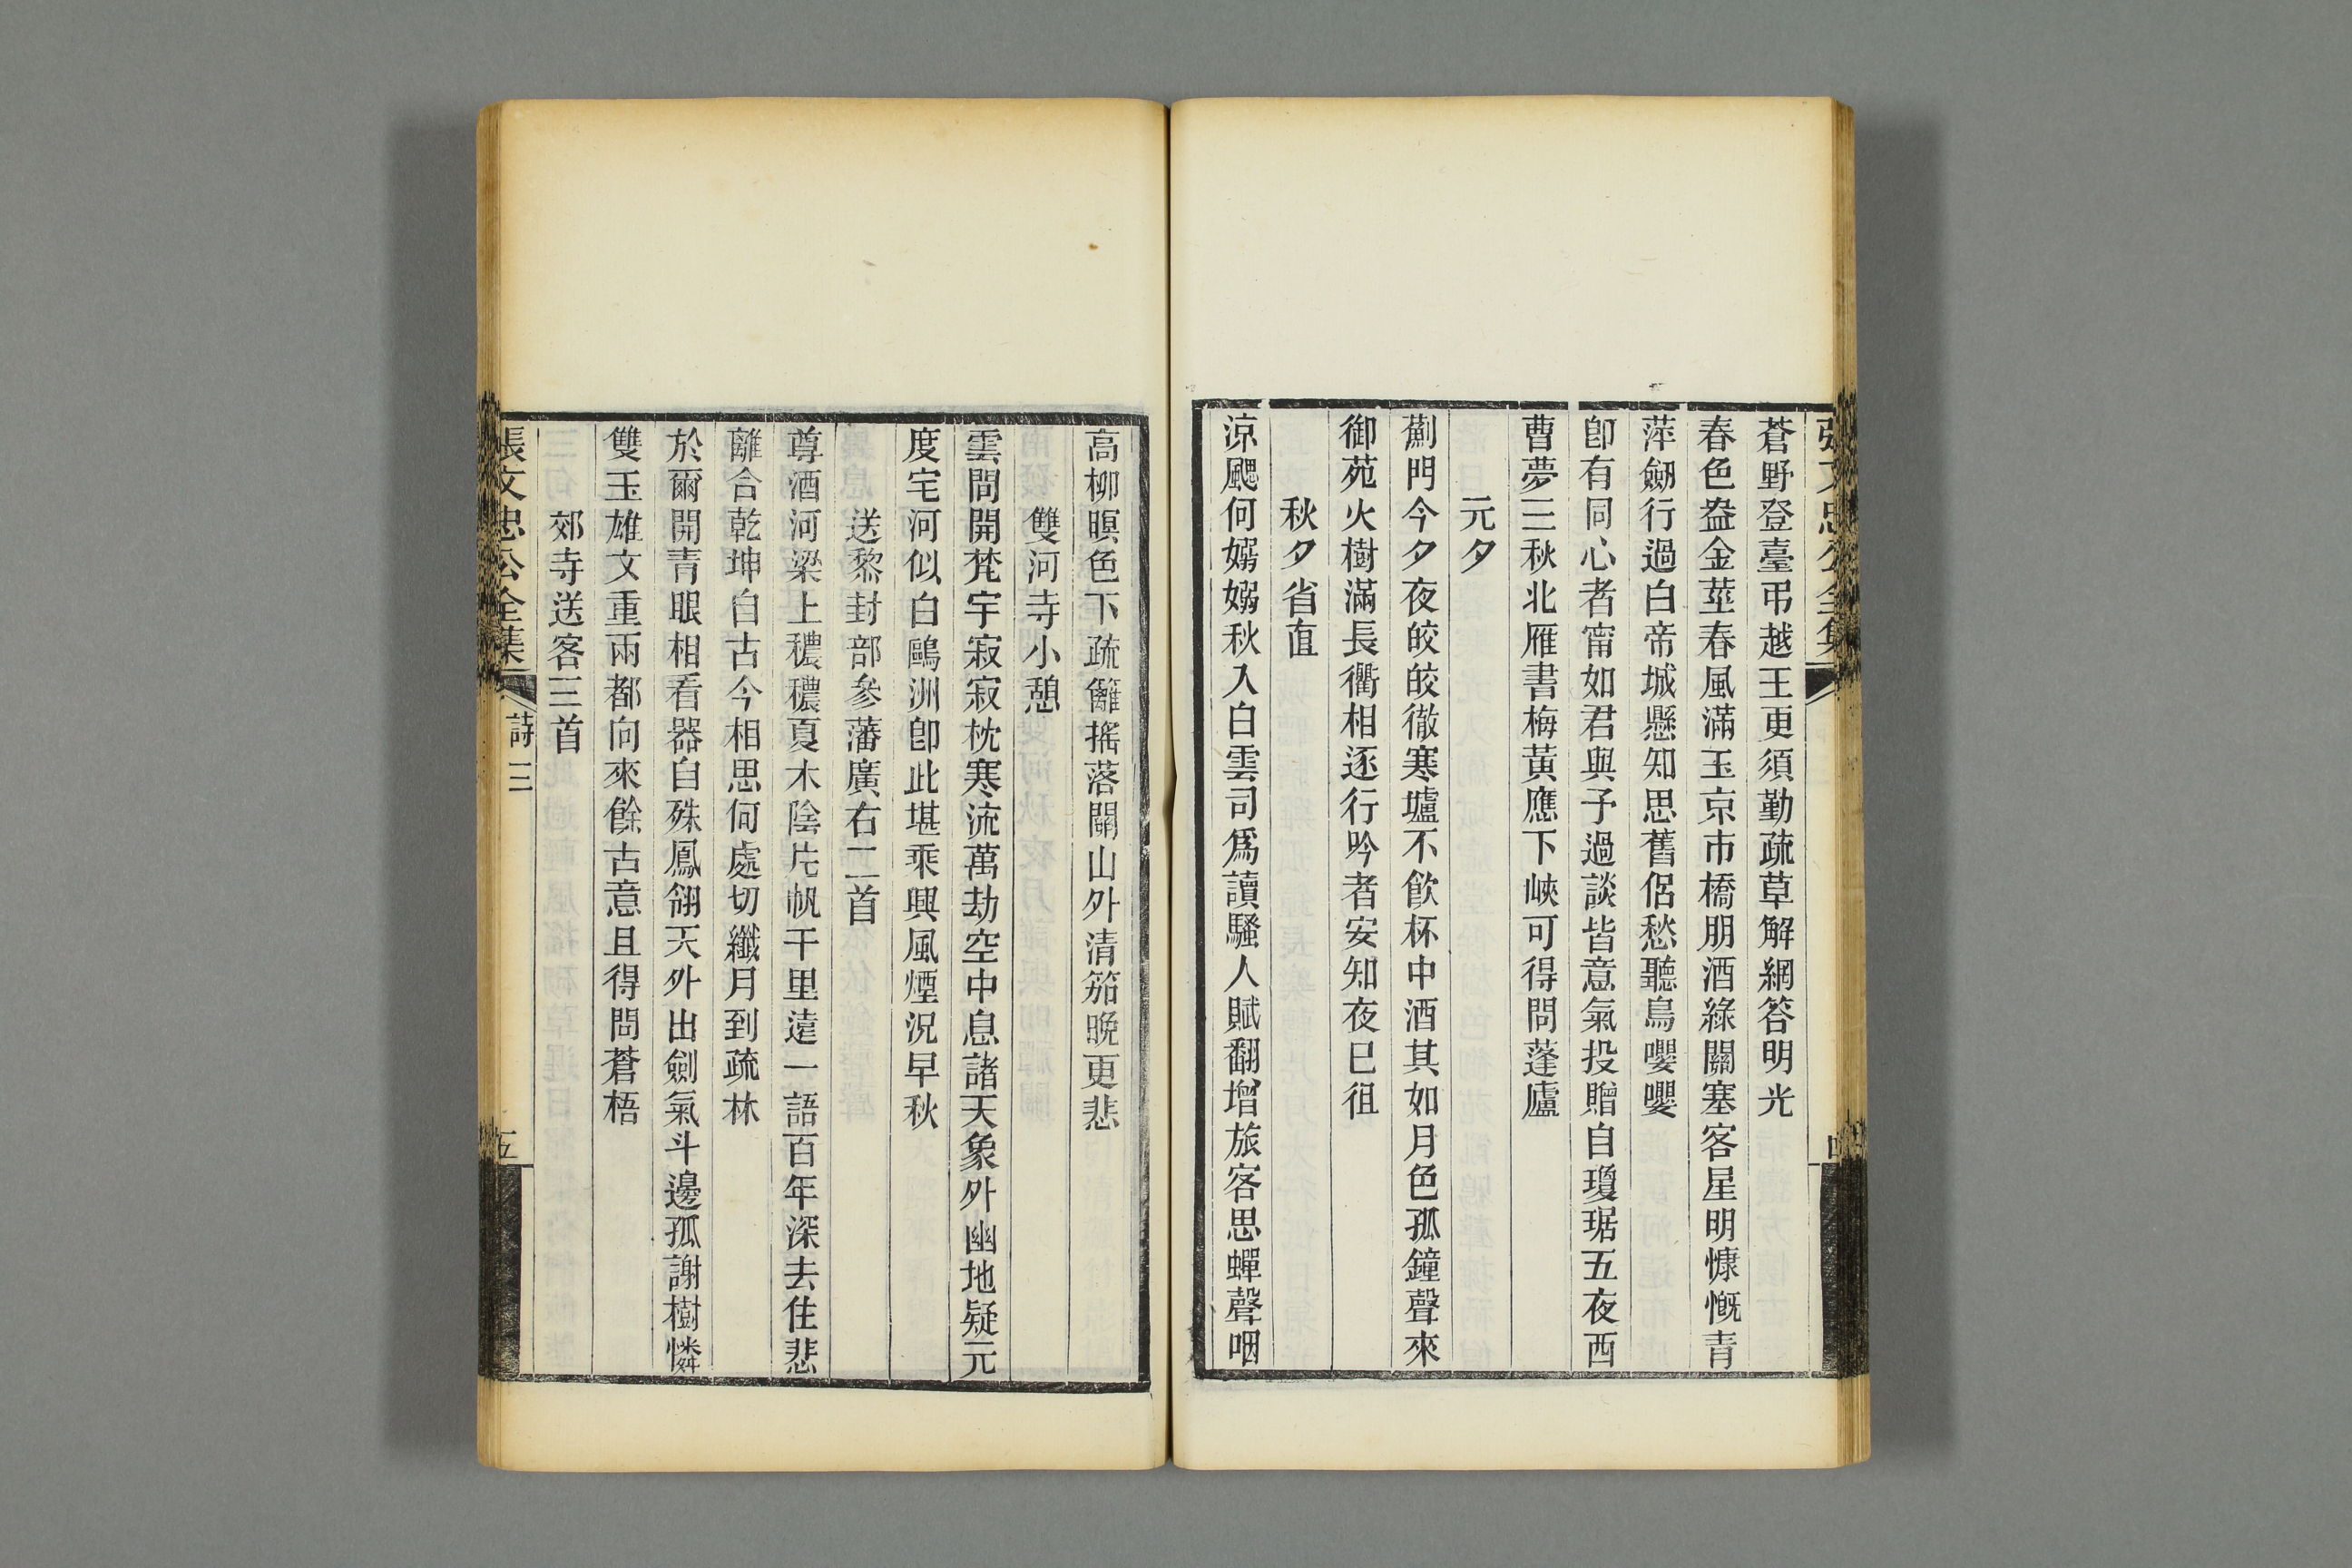 張文忠公全集
四
蒼野登臺弔越王更須勤疏草解網答明光
春色盎金莖春風滿玉京市橋朋酒綠關塞客星明慷慨青
萍劒行過白帝城懸知思舊侶愁聽鳥嚶嚶
卽有同心者甯如君與予過談皆意氣投贈自瓊琚五夜西
曹夢三秋北雁書梅黃應下峽可得問蓬廬
元夕
薊門今夕夜皎皎徹寒壚不飮杯中酒其如月色孤鐘聲來
御苑火樹滿長衢相逐行吟者安知夜已徂
秋夕省直
涼颸何嫋嫋秋入白雲司爲讀騷人賦翻增旅客思蟬聲咽
高柳暝色下疏籬搖落關山外清笳晚更悲
雙河寺小憩
雲間開梵宇寂寂枕寒流萬劫空中息諸天象外幽地疑元
度宅河似白鷗洲卽此堪乘興風煙況早秋
送黎封部參藩廣右二首
尊酒河梁上穠穠夏木陰片帆千里遠一語百年深去住悲
離合乾坤自古今相思何處切纖月到疏林
於爾開靑眼相看器自殊鳳翎天外出劍氣斗邊孤謝樹憐
雙玉雄文重兩都向來餘古意且得問蒼梧
郊寺送客三首
張文忠公全集
詩三
五